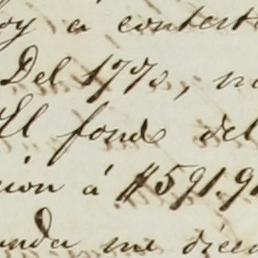 oy á contest
Del 17%, no
El fondo del
cion á $591.9
anda me dicen